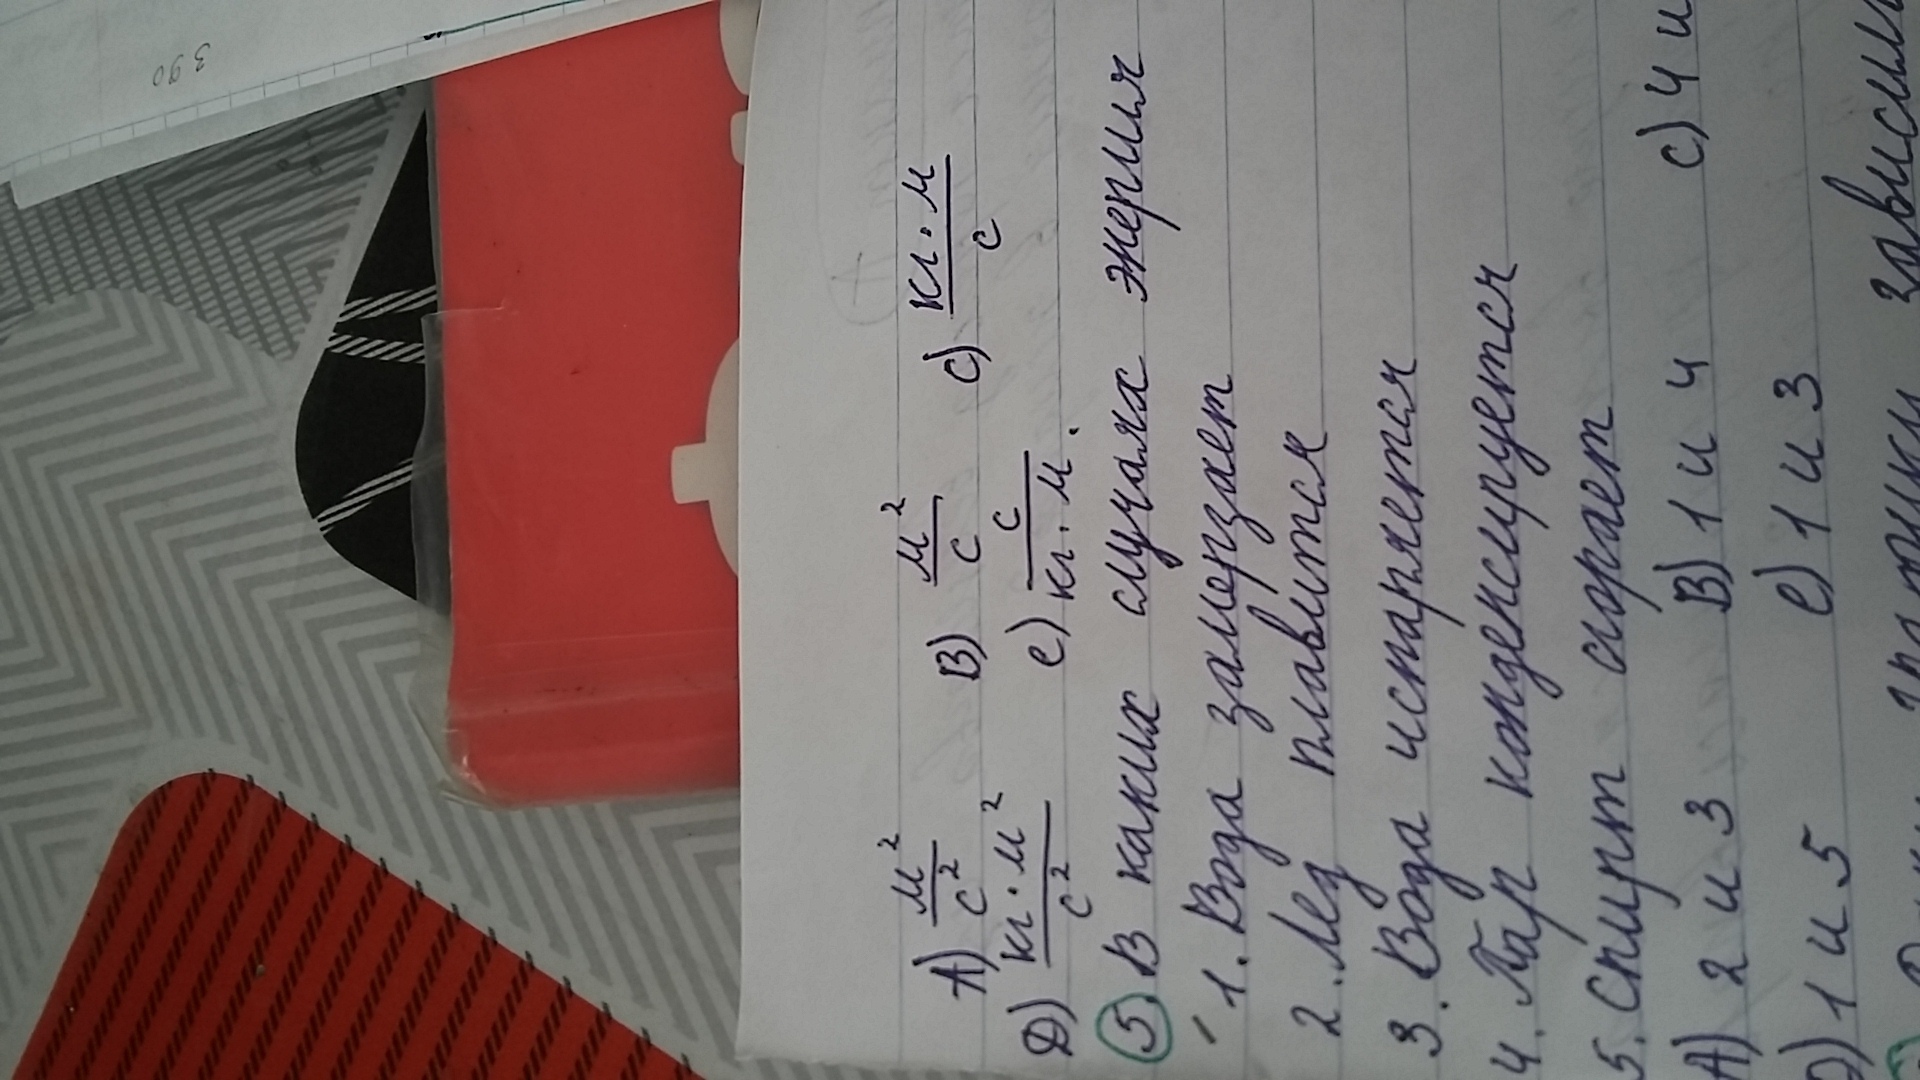 390
A) м²/с² B) м²/с C) кг·м/с
D) кг·м²/с² e) с/кг·м.
5. В каких случаях энергия
1. Вода замерзает
2. Лед плавится
3. Вода испаряется
4. Пар конденсируется
5. Спирт сгорает
A) 2 и 3 B) 1 и 4 C) 4 и
D) 1 и 5 e) 1 и 3